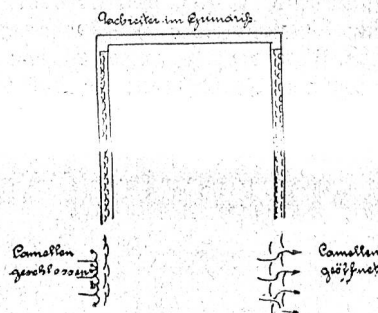 Dachreiter im Grundriß
Lamellen
geschlossen
Lamellen
geöffnet